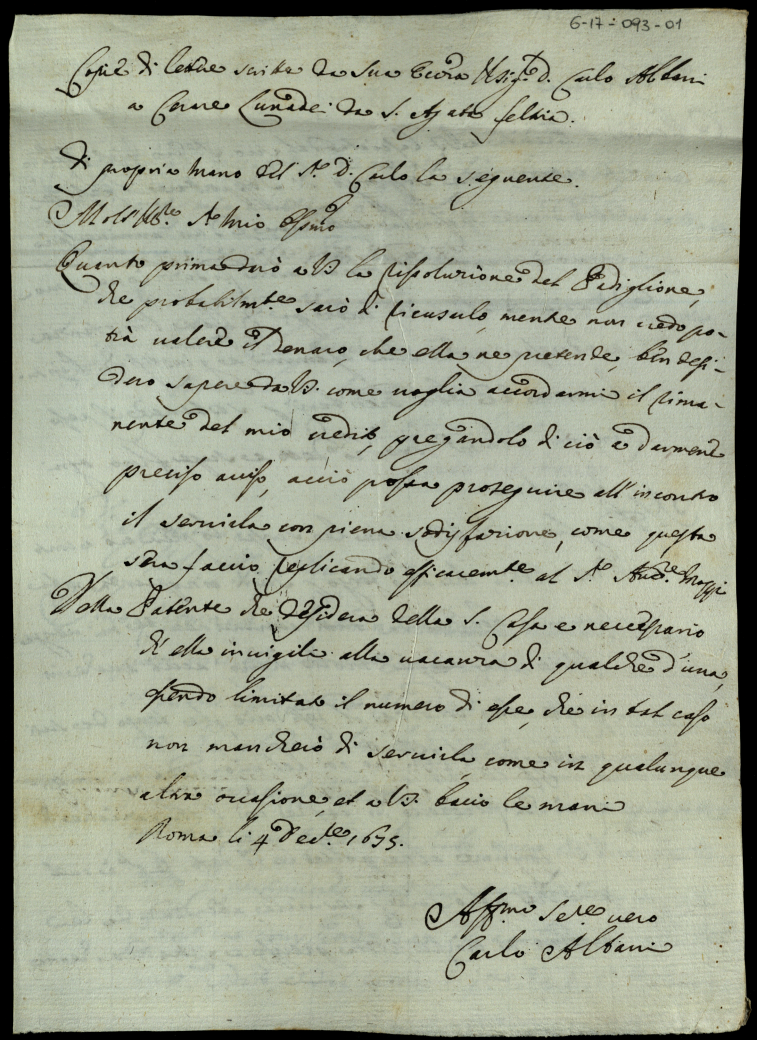 6-17-093-01
Copie di lettere scritte da Sua Ecc.za Il Sig.re D. Carlo Albani
a Cesare Lunadei da S. Agata Feltria.
di propria mano del S.r D. Carlo la seguente.
Molt' Ill.re S.r mio Oss.mo
Quanto prima darò a VS. la rissoluzione del Padiglione,
che probabilm.te sarò di ricusarlo, mentre non credo po-
trà valere il denaro, che ella ne pretende, ben desi-
dero sapere da VS. come voglia accordarmi il rima-
nente del mio credito, pregandolo di ciò a darmene
preciso aviso, acciò possa proseguire all'incontro
il servirla con piena sodisfazione, come questa
sera faccio, replicando efficacem.te al S.r And.a Maggi
Della Patente che desidera della S. Casa e necessario
ch'ella invigili alla vacanza di qualched'una,
essendo limitato il numero di esse, che in tal caso
non mancherò di servirla, come in qualunque
altra occasione, et a VS. bacio le mani
Roma li 4 Xcbre 1675.
Aff.mo Ser.re vero
Carlo Albani